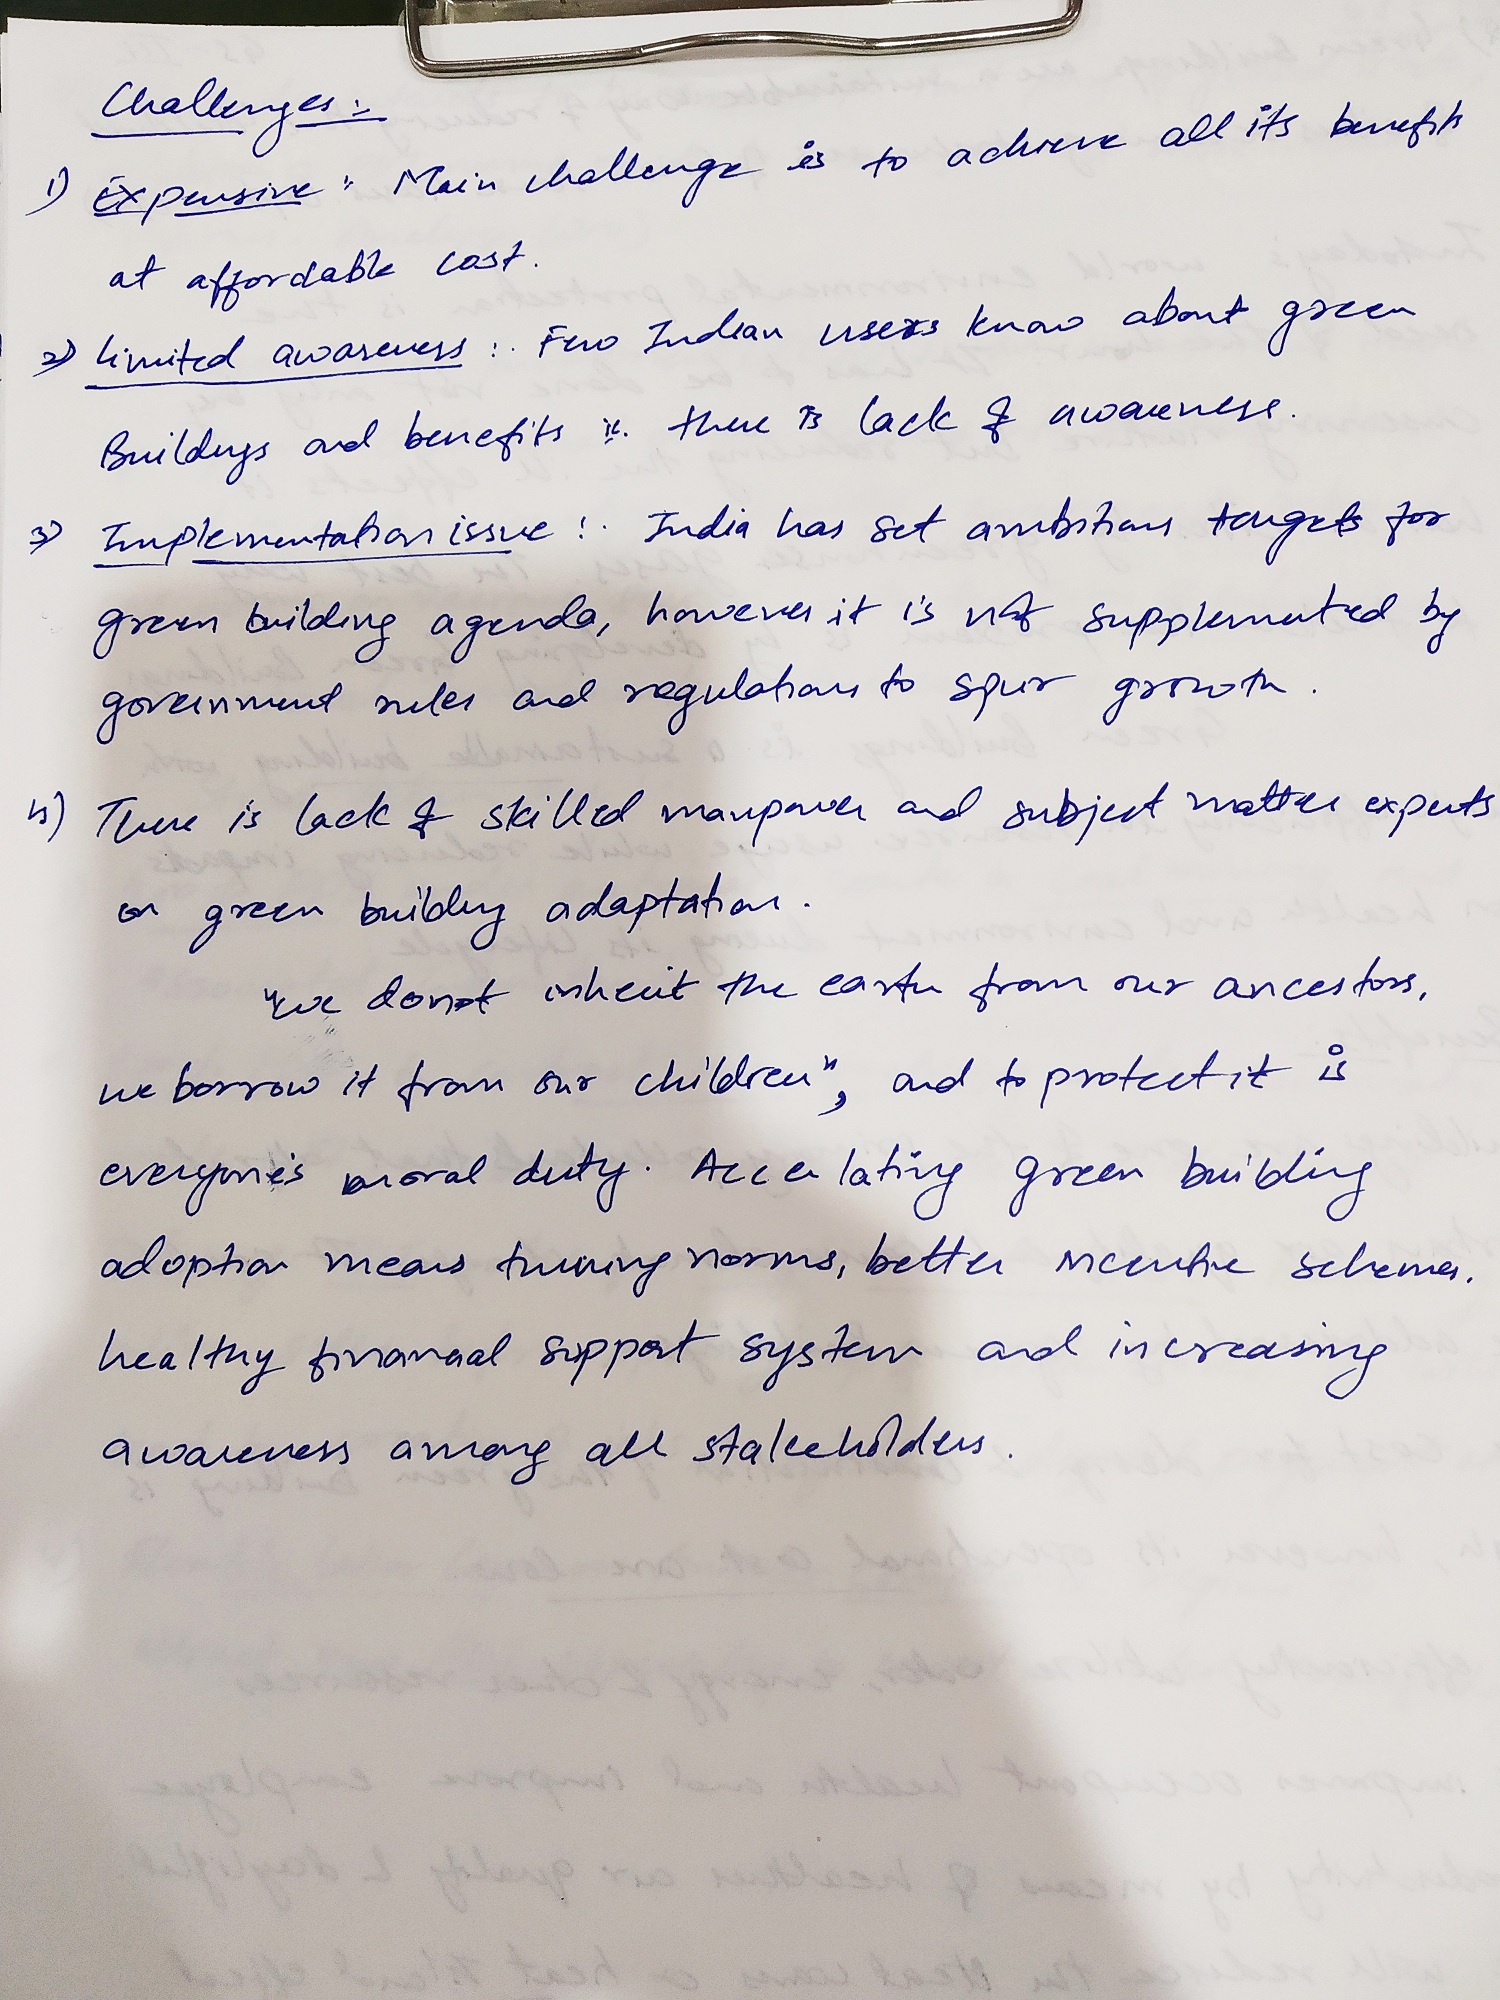 Challenges :-
1) Expensive : Main challenge is to achieve all its benefits
at affordable cost.
2) Limited awareness :. Few Indian users know about green
Buildings and benefits ie. there is lack of awareness.
3) Implementation issue :. India has set ambitious targets for
green building agenda, however it is not supplemented by
government rules and regulations to spur growth.
4) There is lack of skilled manpower and subject matter experts
on green building adaptation.
"We donot inherit the earth from our ancestors,
we borrow it from our children", and to protect it is
everyone's moral duty. Accelating green building
adoption means tunning norms, better incentive schemes,
healthy financial support system and increasing
awareness among all stakeholders.